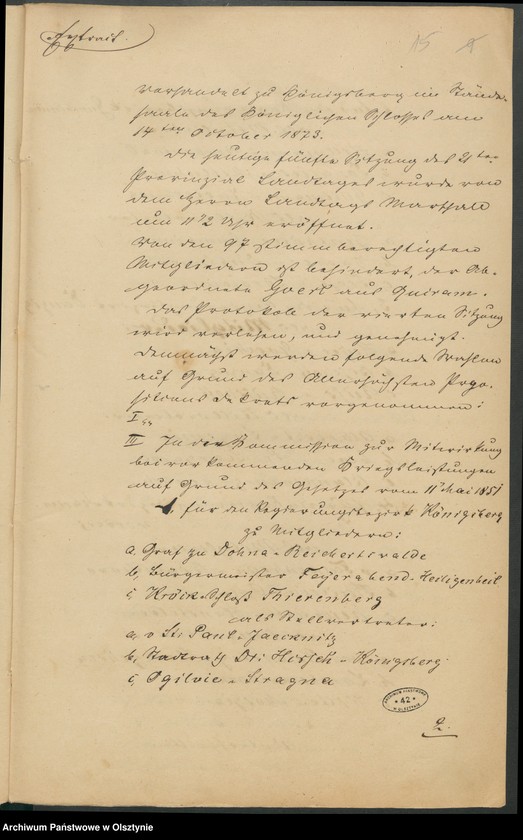 Extrait.
15
Verhandelt zu Königsberg im Stände-
saale des Königlichen Schlosses am
14ten October 1873.
Die heutige fünfte Sitzung des 21ten
Provinzial Landtages wurde von
dem Herrn Landtags Marschall
um 11 1/2 Uhr eröffnet.
Von den 97 stimmberechtigten
Mitgliedern ist behindert, der Ab-
geordnete Goertz aus Quiram.
Das Protokoll der vierten Sitzung
wird verlesen, und genehmigt.
Demnächst werden folgende Wahlen
auf Grund des Allerhöchsten Propo-
sitions dekrets vorgenommen:
I
III In der Kommission zur Mitwirkung
bei vorkommenden Kriegsleistungen
auf Grund des Gesetzes vom 11 Mai 1851
für den Regierungsbezirk Königsberg
zu Mitgliedern:
a, Graf zu Dohna-Reichertswalde
b, Bürgermeister Feyerabend-Heiligenbeil
c, Schloß Thierenberg
als Stellvertreter:
a, v St. Paul-Jaecknitz
b, Stadtrath Dr: Hirsch-Königsberg
c, Ogilvie-Stragna
ARCHIWUM PAŃSTWOWE
42
W OLSZTYNIE
2.
Archiwum Państwowe w Olsztynie